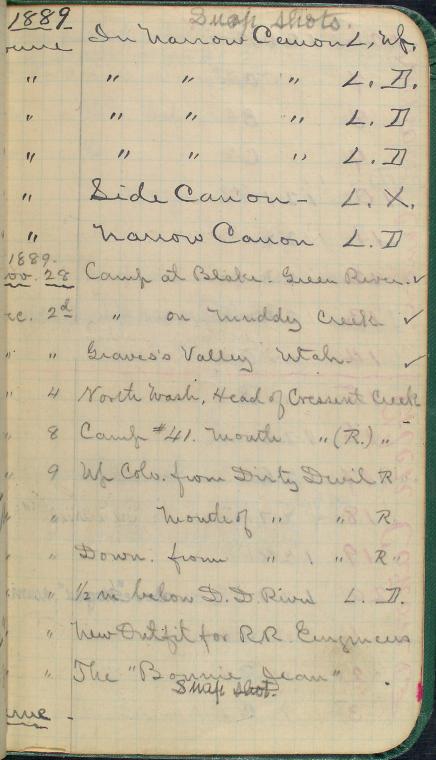 1889 Snap shots.
June In Narrow Canon L. Up.
" " " " L. D.
" " " " L. D
" " " " L. D
" Side Canon - L. X.
" Narrow Canon L. D
1889.
ov. 28 Camp at Blake. Green River. ✓
ec. 2d " on Muddy Creek ✓
" " Graves's Valley Utah. ✓
" 4 North Wash, Head of Cressent Creek
" 8 Camp #41. Mouth " (R.) "
" 9 Up Colo. from Dirty Devil R
" " Mouth of " " R
" " Down. from " " R
" 1/2 m below D. D. River L. D.
" New Outfit for R.R. Engineers
" The "Bonnie Jean" .
Snap shot.
une -